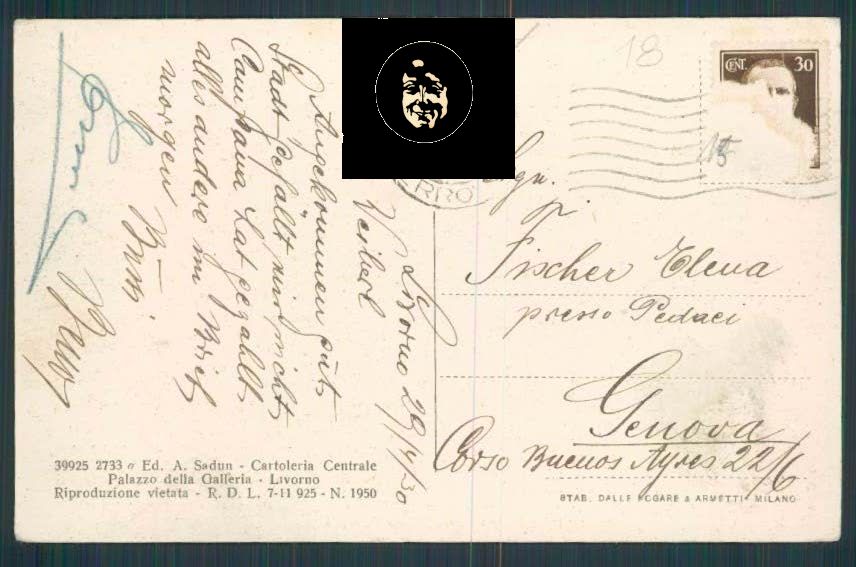 Livorno 29/4/30
Veiberl
Angekommen gut,
Stadt gefällt mir nicht,
Campana hat gezahlt
alles andere im Brief
morgen
Bussi
18
CENT. 30
15
Sgn.
Fischer Elena
presso Pedaci
Genova
Corso Buenos Ayres 22/6
39925 2733 a Ed. A. Sadun - Cartoleria Centrale
Palazzo della Galleria - Livorno
Riproduzione vietata - R. D. L. 7-11 925 - N. 1950
STAB. DALLE NOGARE & ARMETTI - MILANO